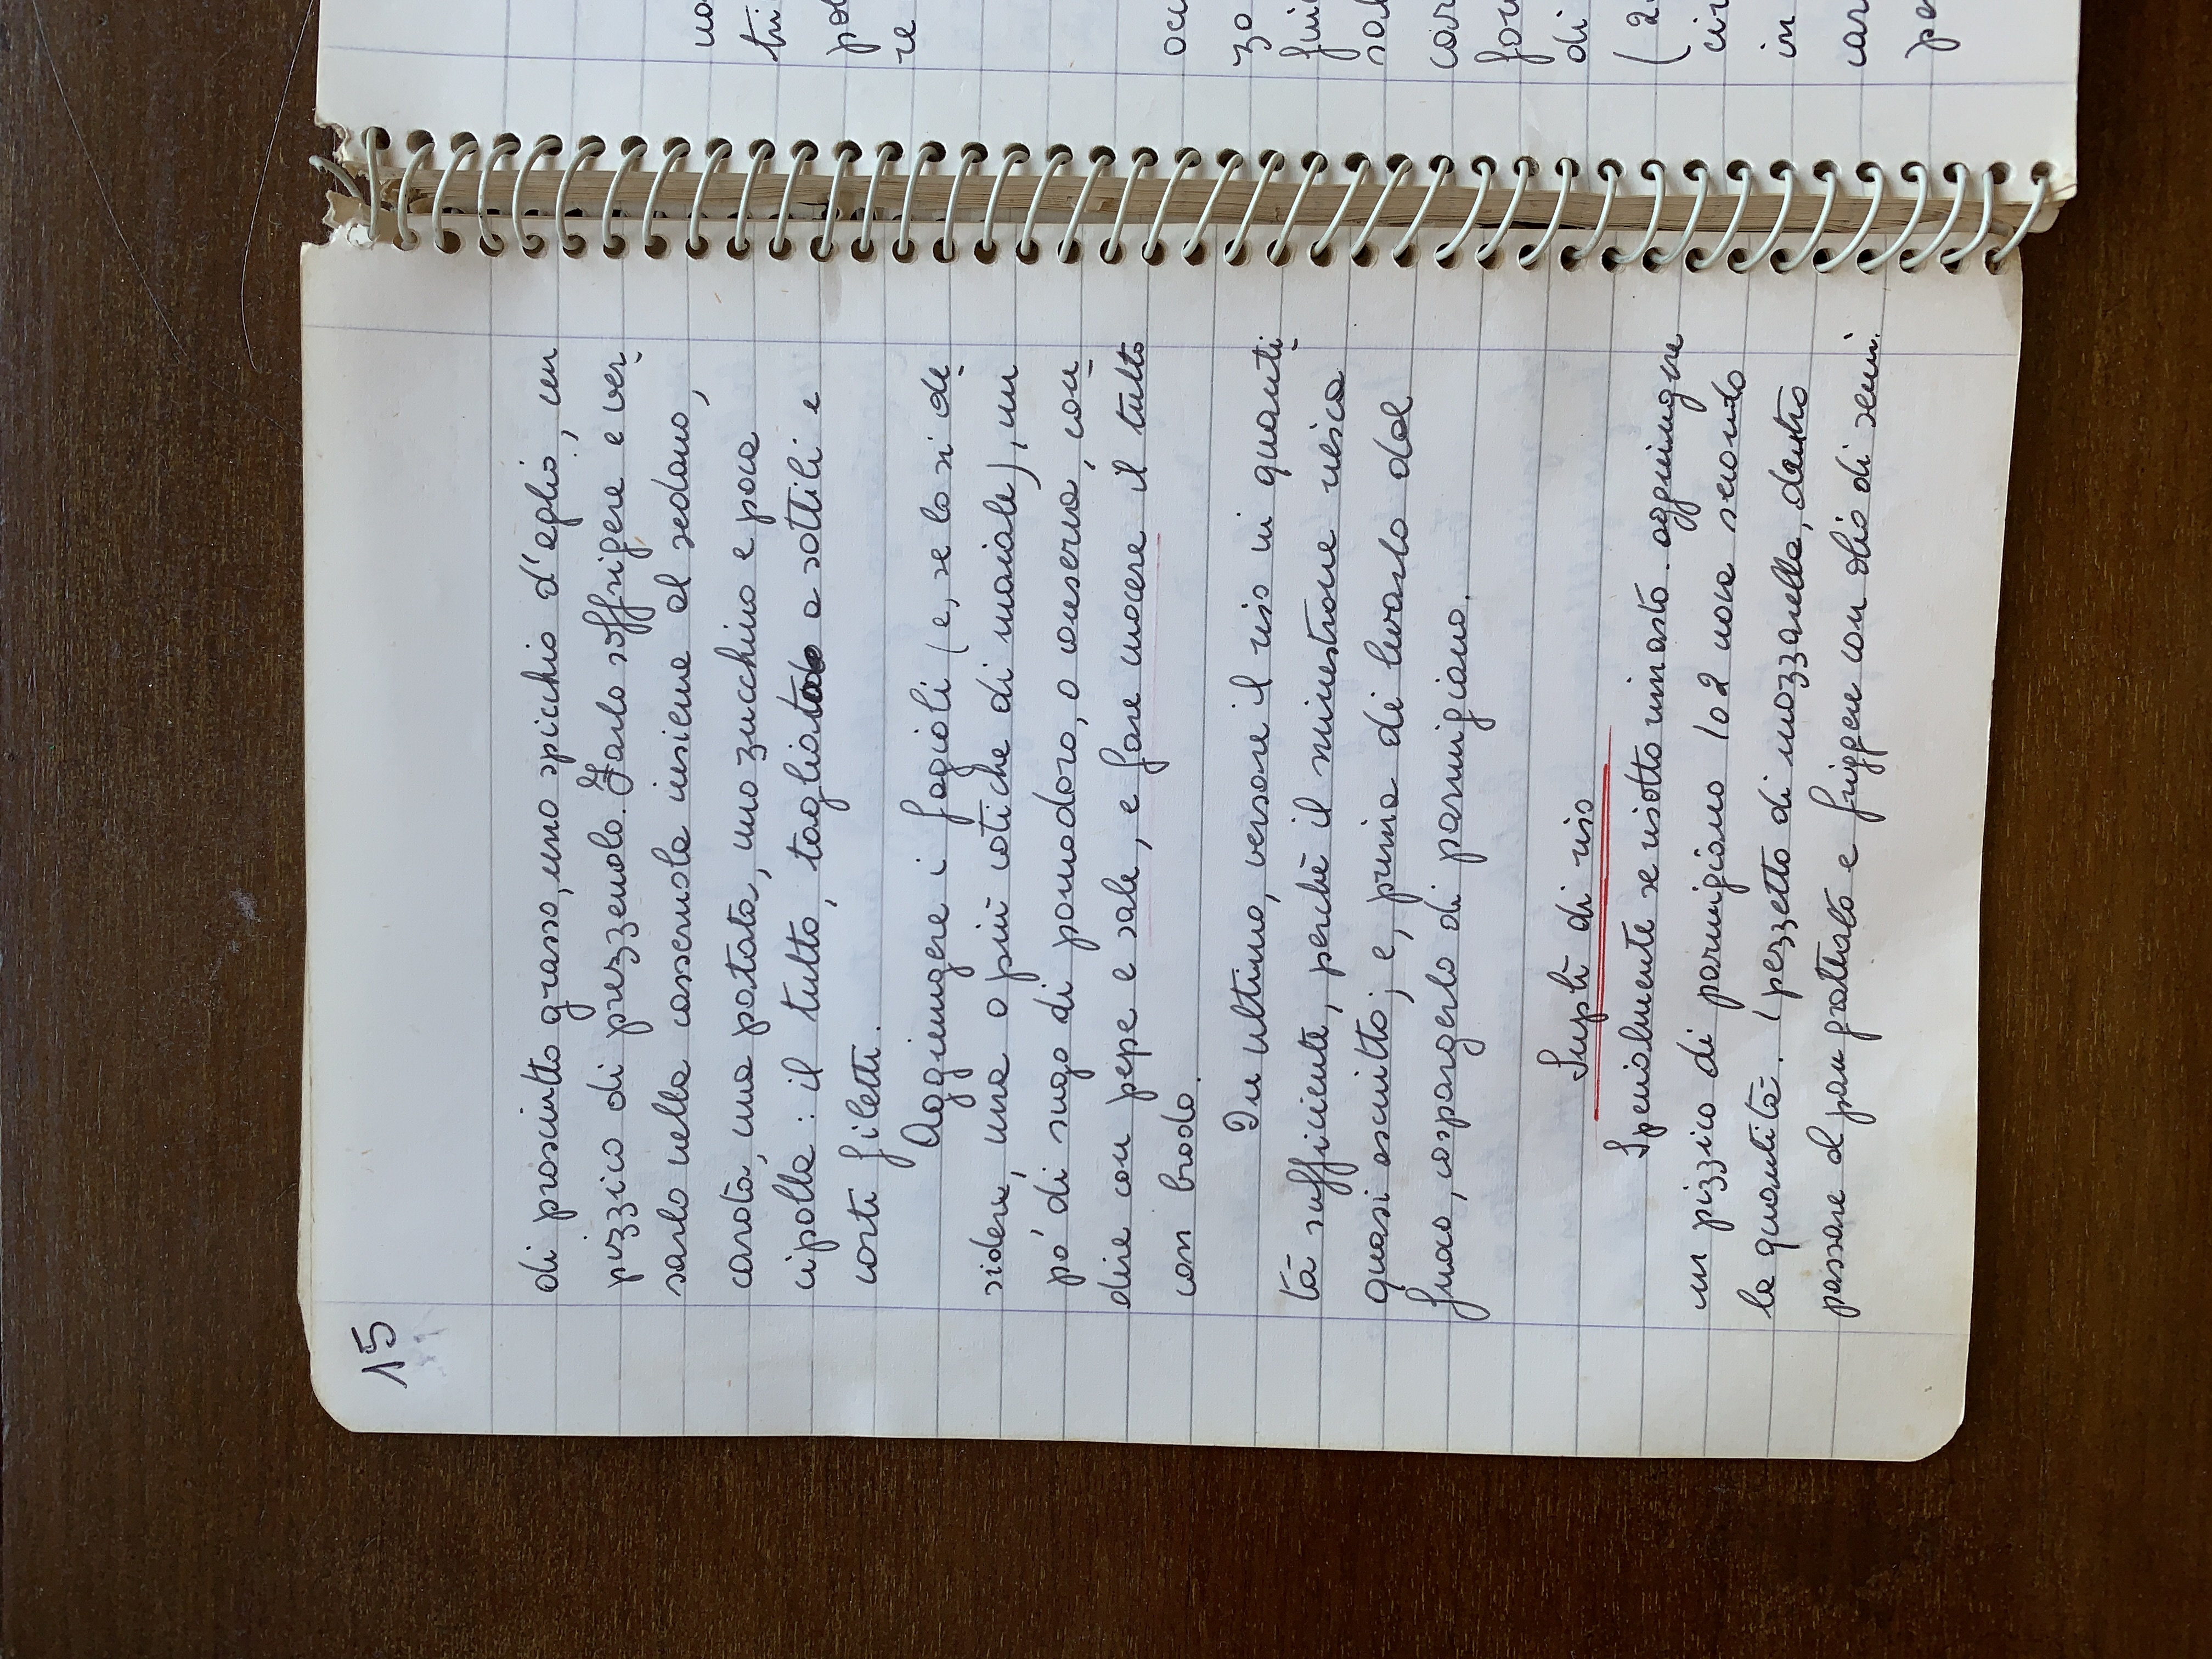 15
di prosciutto grasso, uno spicchio d'aglio, un
pizzico di prezzemolo. Farlo soffrigere e ver-
sarlo nella casseruola insieme al sedano,
carota, una patata, uno zucchino e poca
cipolla : il tutto, tagliato a sottili e
corti filetti.
Aggiungere i fagioli (e, se lo si de-
sidera, una o più cotiche di maiale), un
po' di sugo di pomodoro, o conserva, con-
dire con pepe e sale, e fare cuocere il tutto
con brodo.
In ultimo, versare il riso in quanti-
tà sufficiente, perchè il minestrone riesca
quasi asciutto; e, prima di levarlo dal
fuoco, cospargerlo di parmigiano.
Suplì di riso
Specialmente se risotto rimasto. aggiungere
un pizzico di parmigiano 1 o 2 uova secondo
la quantità. 1 pezzetto di mozzarella, dentro
passare al pan grattato e friggere con olio di semi.
tri
re
zo
di
(2
in